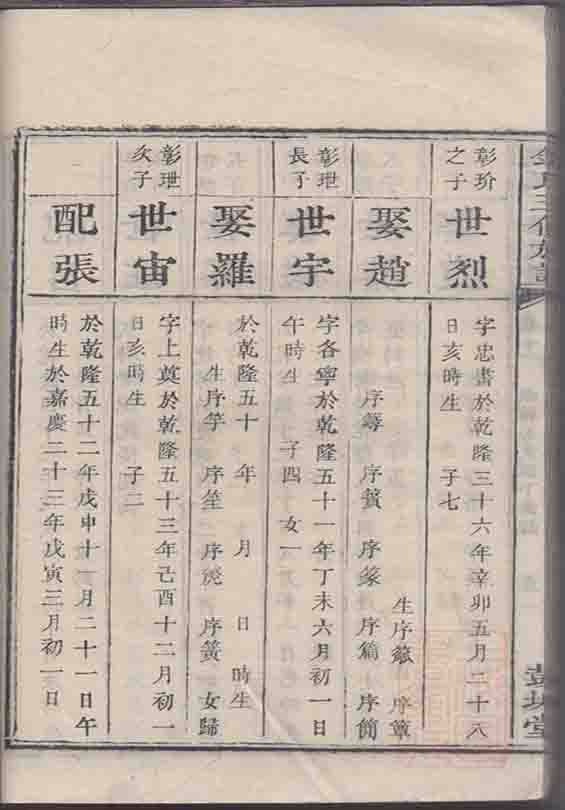 彰玠
之子
世烈
字忠書於乾隆三十六年辛卯五月二十八
日亥時生　子七
娶趙
生序 序篁
序 序篔 序篆 序篇 序簡
彰玴
長子
世宇
字各寧於乾隆五十一年丁未六月初一日
午時生　子四　女一
娶羅
於乾隆五十　年　月　日　時生
生序竽　序笙　序箎　序簧　女歸
彰玴
次子
世宙
字上奠於乾隆五十三年己酉十二月初一
日亥時生　子二
配張
於乾隆五十二年戊申十一月二十一日午
時生於嘉慶二十三年戊寅三月初一日